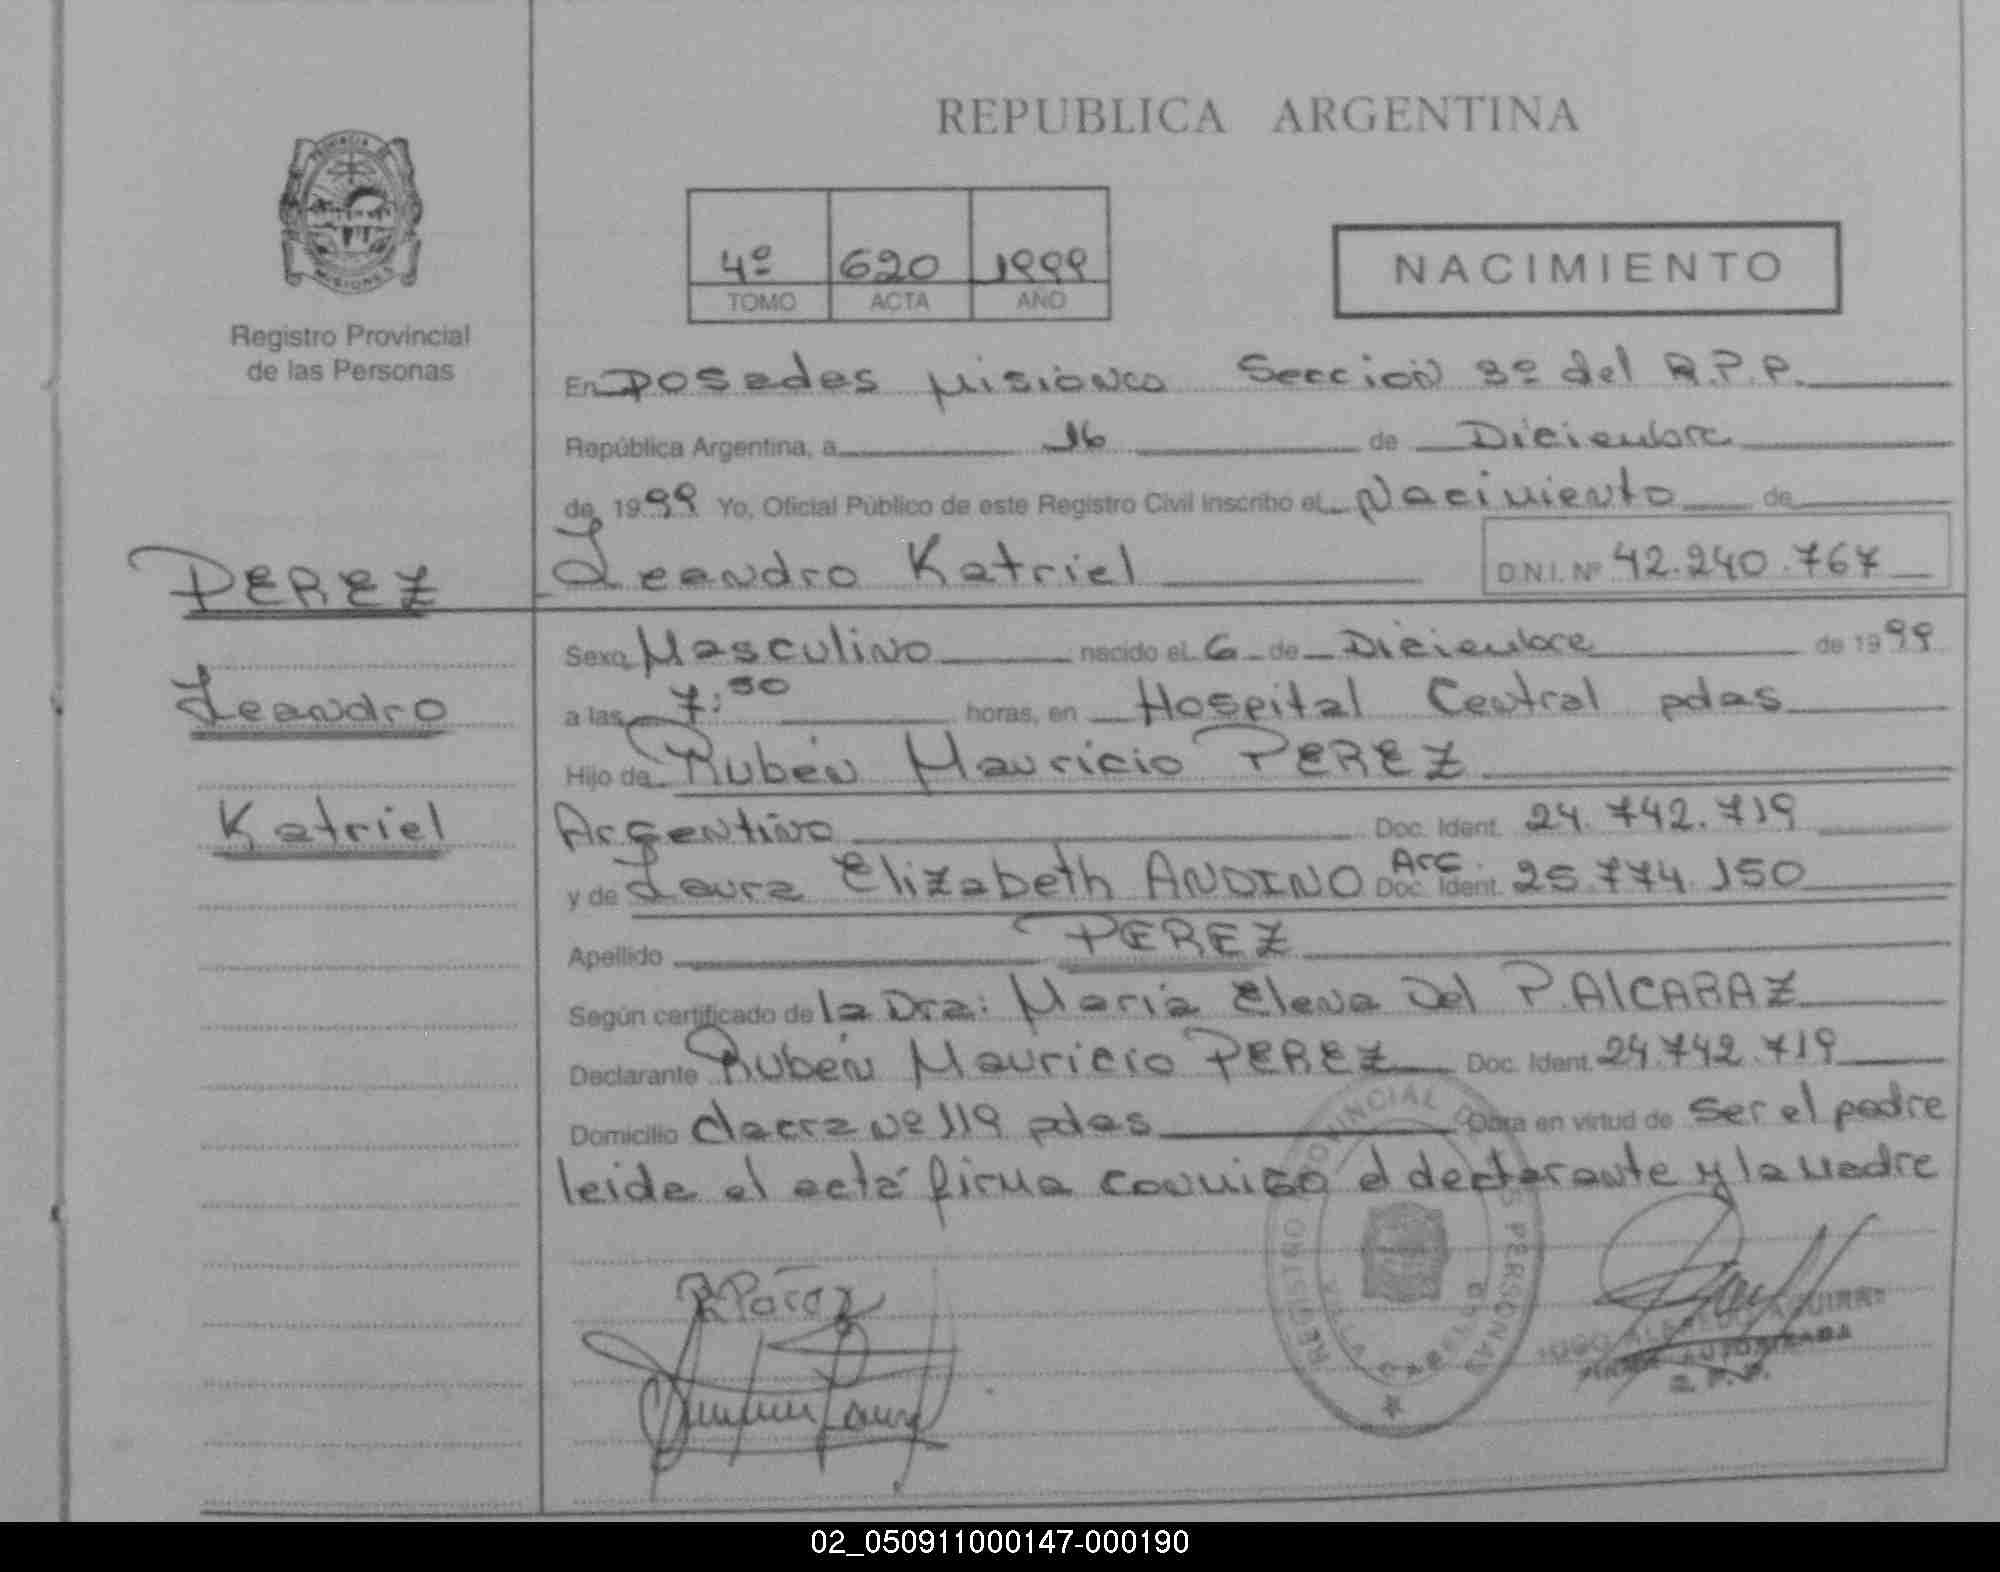 REPUBLICA ARGENTINA
PROVINCIA DE MISIONES
Registro Provincial
de las Personas
4º 620 1999
TOMO ACTA AÑO
NACIMIENTO
En Posadas Misiones Seccion 3º del R.P.P.
República Argentina, a 16 de Diciembre
de 1999 Yo, Oficial Público de este Registro Civil Inscribo el Nacimiento de
Leandro Katriel D.N.I. Nº 42.240.767
PEREZ
Leandro
Katriel
Sexo Masculino nacido el 6 de Diciembre de 1999
a las 7:50 horas, en Hospital Central pdas
Hijo de Rubén Mauricio PEREZ
Argentino Doc. Ident. 24.742.719
y de Laura Elizabeth ANDINO Arg. Doc. Ident. 25.774.150
Apellido PEREZ
Según certificado de la Dra: María Elena Del P. AlCARAZ
Declarante Rubén Mauricio PEREZ Doc. Ident. 24.742.719
Domicilio chacra nº 119 pdas Obra en virtud de ser el padre
leida el acta firma conmigo el declarante y la madre
R Pérez
REGISTRO PROVINCIAL DE LAS PERSONAS
VILLA CABELLO
FIRMA AUTORIZADA
R.P.P.
02_050911000147-000190